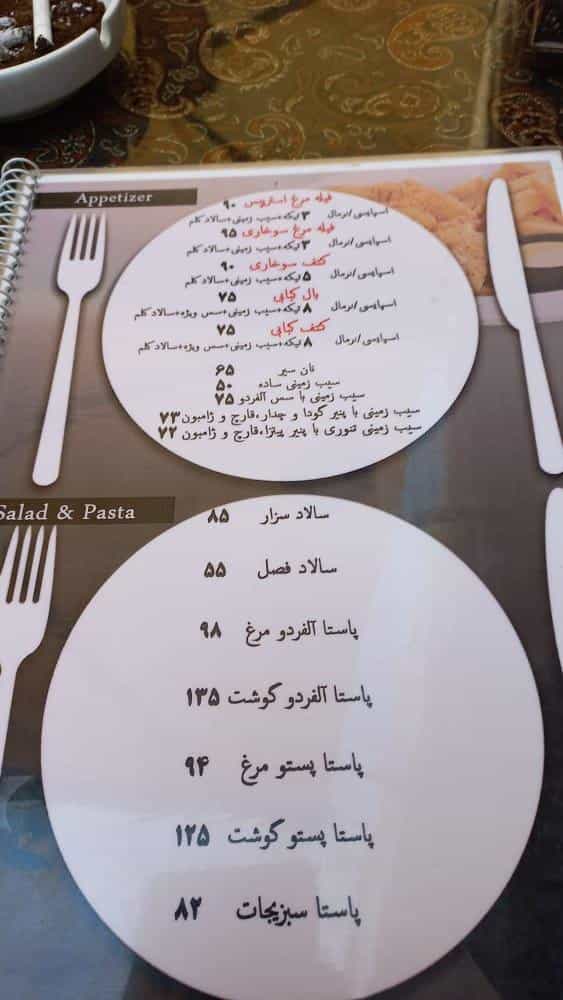 Appetizer
فیله مرغ استریپس ۹۰
اسپایسی/نرمال ۳تیکه+سیب زمینی+سالاد کلم
فیله مرغ سوخاری ۹۵
اسپایسی/نرمال ۳تیکه+سیب زمینی+سالاد کلم
کتف سوخاری ۹۰
اسپایسی/نرمال ۵تیکه+سیب زمینی+سالاد کلم
بال کبابی ۷۵
اسپایسی/نرمال ۸تیکه+سیب زمینی+سس ویژه+سالاد کلم
کتف کبابی ۷۵
اسپایسی/نرمال ۸تیکه+سیب زمینی+سس ویژه+سالاد کلم
نان سیر ۶۵
سیب زمینی ساده ۵۰
سیب زمینی با سس آلفردو ۷۵
سیب زمینی با پنیر گودا و چدار،قارچ و ژامبون ۷۳
سیب زمینی تنوری با پنیر پیتزا،قارچ و ژامبون ۷۲
Salad & Pasta
سالاد سزار ۸۵
سالاد فصل ۵۵
پاستا آلفردو مرغ ۹۸
پاستا آلفردو گوشت ۱۳۵
پاستا پستو مرغ ۹۴
پاستا پستو گوشت ۱۲۵
پاستا سبزیجات ۸۲